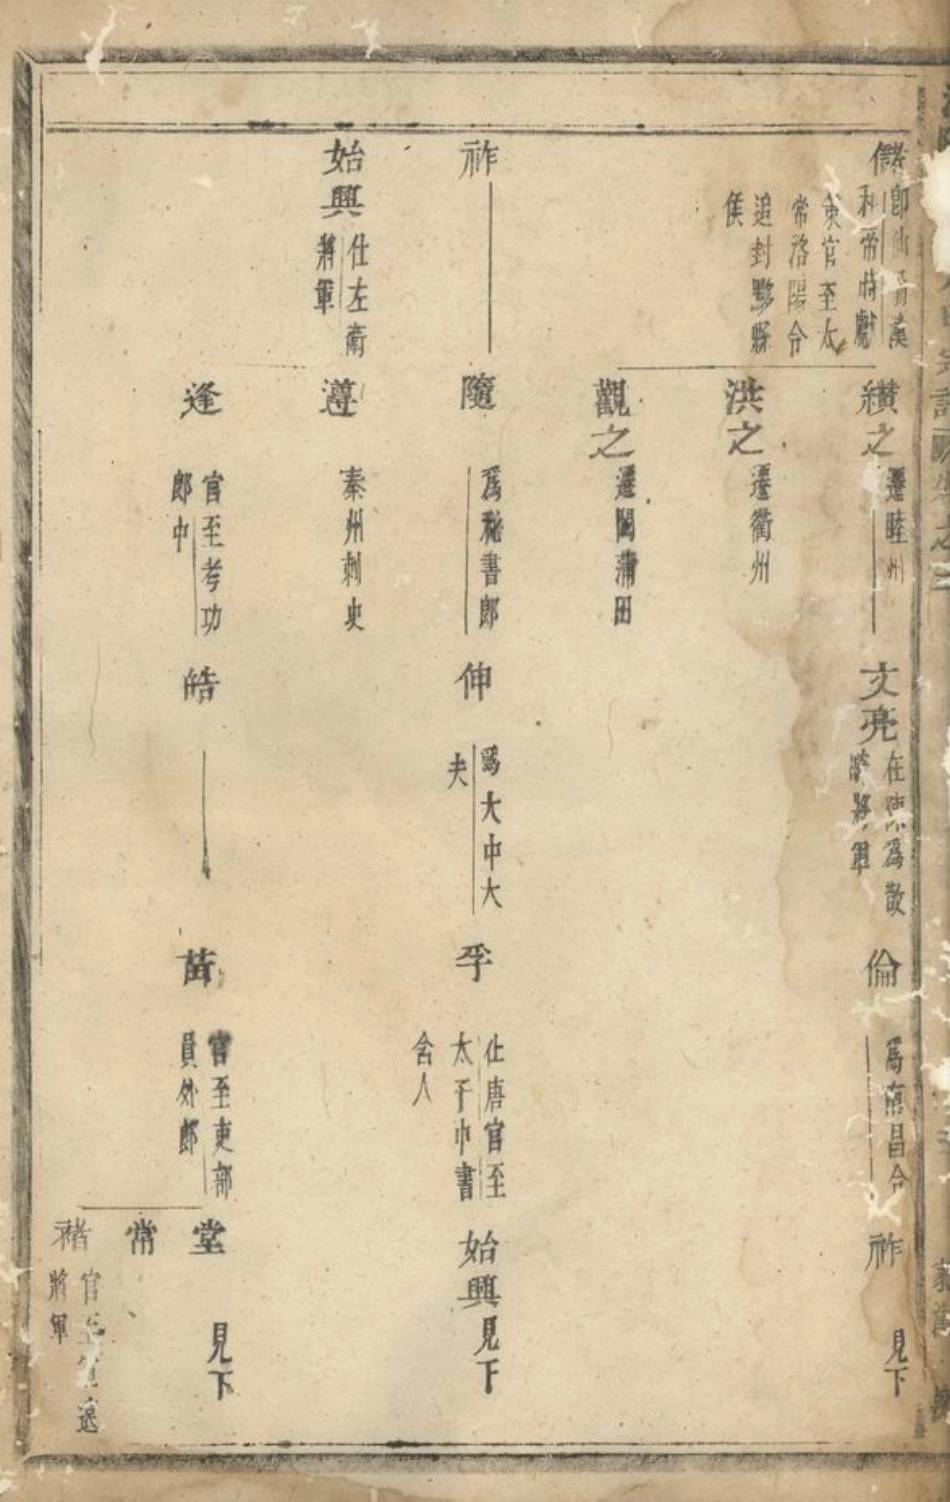 儲
和帝時獻
策官至太
常洛陽令
追封黟縣
侯
纘之
遷睦州
文亮
在陳為散
騎將軍
倫
為南昌令
祚
見下
洪之
遷衢州
觀之
遷閩蒲田
祚
隨
為秘書郎
伸
為大中大
夫
孚
仕唐官至
太子中書
舍人
始興
見下
始興
仕左衛
將軍
遵
秦州刺史
逢
官至考功
郎中
皓
苗
官至吏部
員外郎
堂
見下
常
褚
官至
將軍